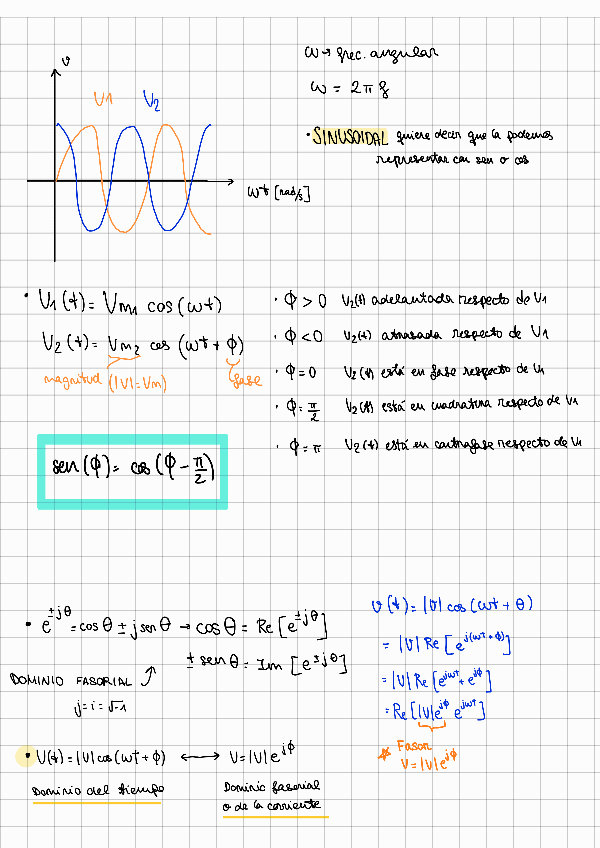 v
V1
V2
ωt [rad/s]
ω → frec. angular
ω = 2π f
• SINUSOIDAL quiere decir que la podemos
representar con sen o cos
• V1(t) = Vm1 cos(ωt)
V2(t) = Vm2 cos(ωt + ϕ)
magnitud (|V| = Vm)
fase
• ϕ > 0 V2(t) adelantada respecto de V1
• ϕ < 0 V2(t) atrasada respecto de V1
• ϕ = 0 V2(t) está en fase respecto de V1
• ϕ = π/2 V2(t) está en cuadratura respecto de V1
• ϕ = π V2(t) está en contrafase respecto de V1
sen(ϕ) = cos(ϕ - π/2)
• e^±jθ = cosθ ± j senθ → cosθ = Re[e^±jθ]
± senθ = Im[e^±jθ]
DOMINIO FASORIAL
j = i = √-1
v(t) = |V| cos(ωt + θ)
= |V| Re[e^j(ωt+ϕ)]
= |V| Re[e^jωt + e^jϕ]
= Re[|V|e^jϕ e^jωt]
Fasor
V = |V|e^jϕ
• V(t) = |V| cos(ωt + ϕ) ⟷ V = |V| e^jϕ
Dominio del tiempo
Dominio fasorial
o de la corriente